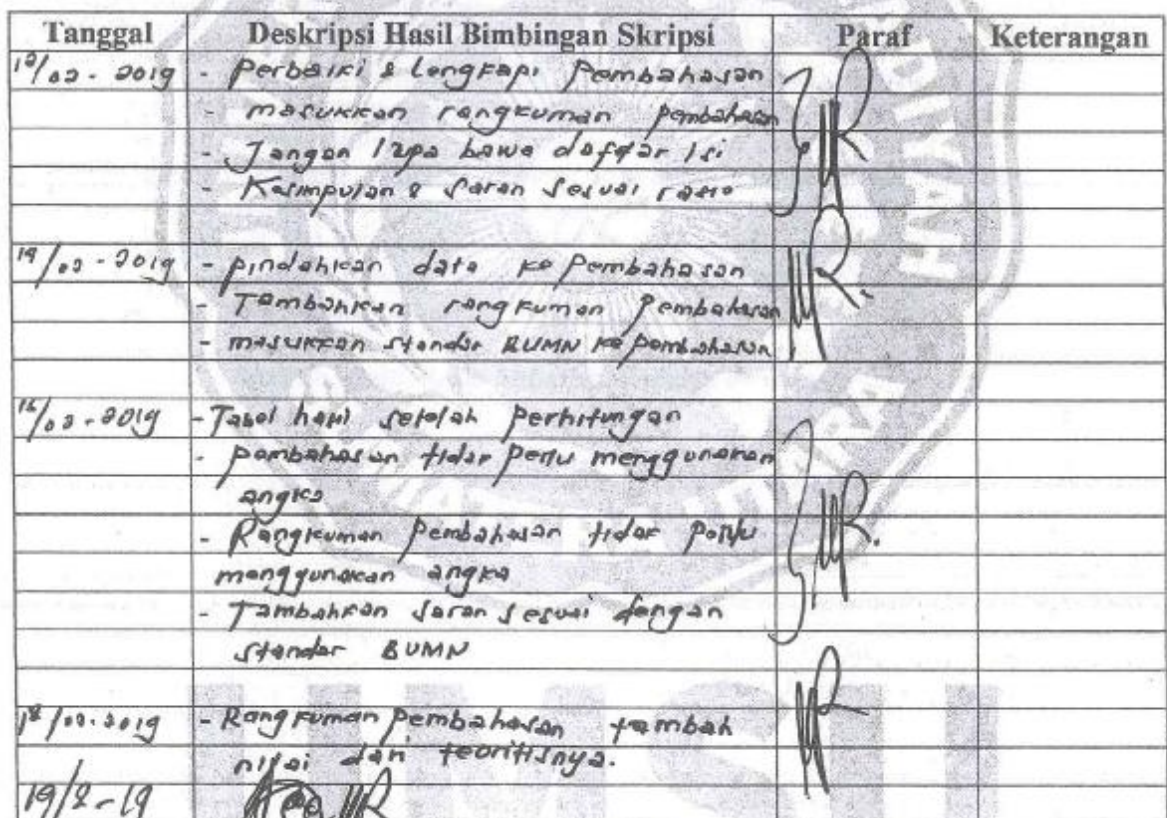 Tanggal Deskripsi Hasil Bimbingan Skripsi Paraf Keterangan
/02 - 2019 - Perbaiki & Lengkapi Pembahasan
- masukkan rangkuman pembahasan
- Jangan lupa bawa daftar isi
- Kesimpulan & Saran Sesuai rasio
/02 - 2019 - pindahkan data ke Pembahasan
- Tambahkan rangkuman Pembahasan
- masukkan standar BUMN ke pembahasan
/02 - 2019 - Tabel hasil setelah Perhitungan
- pembahasan tidak perlu menggunakan
angka
- Rangkuman Pembahasan tidak perlu
menggunakan angka
- Tambahkan Saran Sesuai dengan
Standar BUMN
18/02-2019 - Rangkuman Pembahasan tambah
nilai dan teoritisnya.
19/2-19